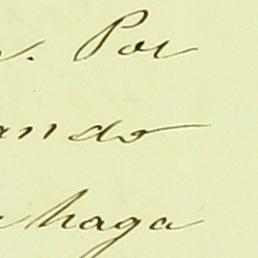 . Por
ando
haga